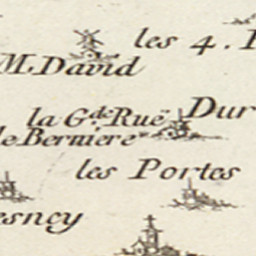 les 4.
M. David
la G.de Ruë
Dur
le Berniere
les Portes
esney